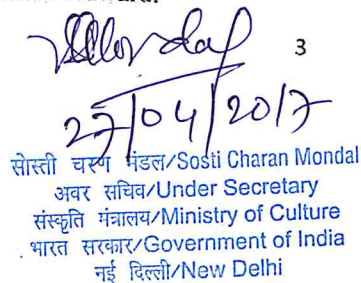 SCMondal
3
27/04/2017
सोस्ती चरण मंडल/Sosti Charan Mondal
अवर सचिव/Under Secretary
संस्कृति मंत्रालय/Ministry of Culture
भारत सरकार/Government of India
नई दिल्ली/New Delhi